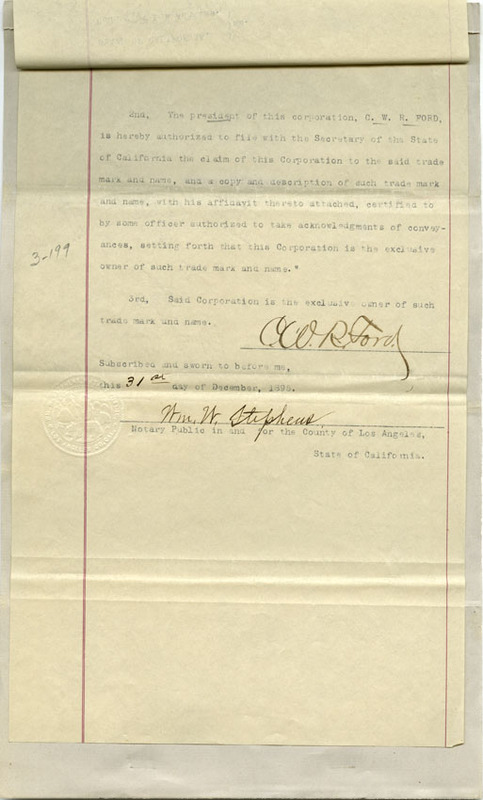 2nd, The president of this corporation, C. W. R. FORD,
is hereby authorized to file with the Secretary of the State
of California the claim of this Corporation to the said trade
mark and name, and a copy and description of such trade mark
and name, with his affidavit thereto attached, certified to
by some officer authorized to take acknowledgments of convey-
ances, setting forth that this Corporation is the exclusive
owner of such trade mark and name."
3-199
3rd, Said Corporation is the exclusive owner of such
trade mark and name.
C. W. R. Ford
Subscribed and sworn to before me,
this 31st day of December, 1895.
Wm. W. Stephens,
Notary Public in and for the County of Los Angeles,
State of California.